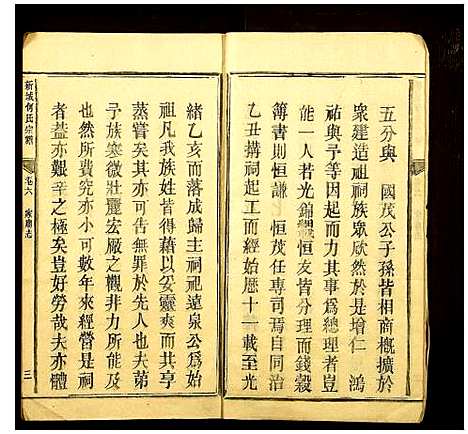 五分與　國茂公子孫皆相商概擴於
衆建造祖祠族衆欣然於是增仁　鴻
祐與予等因而力其事爲總理者則
能一人若光錦　恒友皆分理而錢穀
簿書則恒謙　恒茂任專司焉自同治
乙丑搆祠起工而經始歷十一載至光
緒乙亥而落成歸主祠祀遠泉公爲始
祖凡我族姓皆得藉以妥靈爽而其享
蒸嘗矣其亦可告無罪於先人也夫第
予族寒微壯麗宏厰之觀非力所能及
也然所費究亦不少可數年來經營是祠
者蓋亦艱辛之極矣豈好勞哉夫亦體
新城何氏宗譜
卷六
家廟志
三